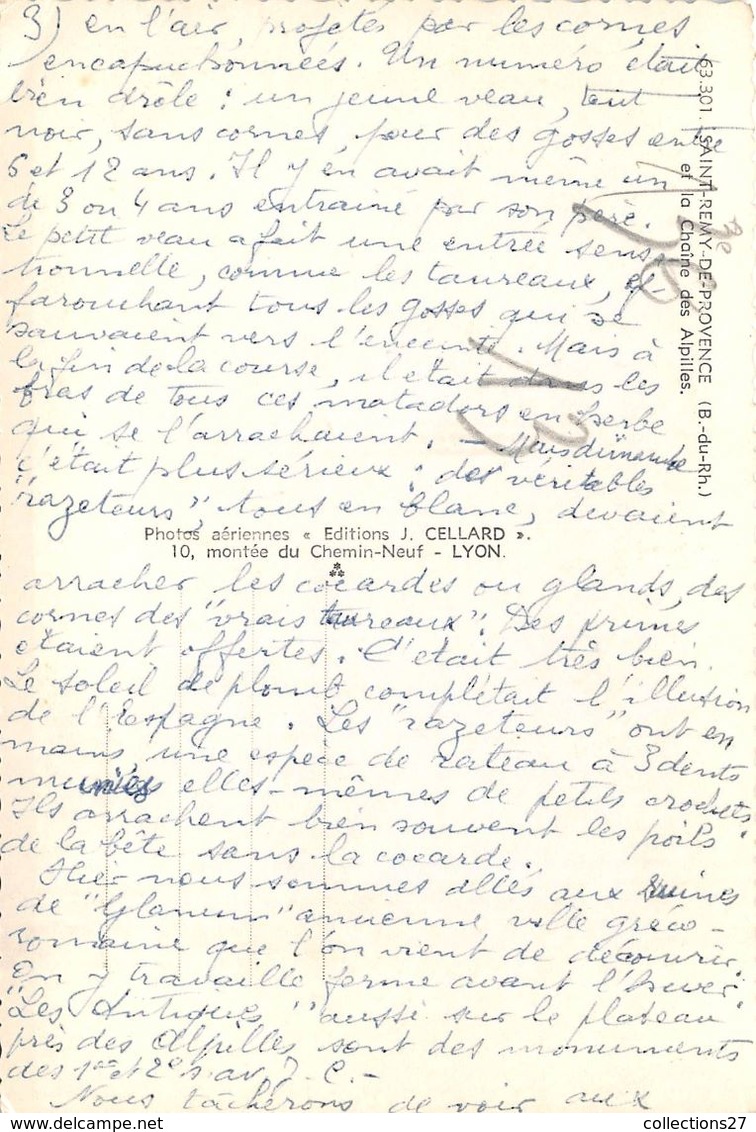 3) en l'air, projetés par les cornes
encapuchonnées. Un numéro était
bien drôle : un jeune veau, tout
noir, sans cornes, pour des gosses entre
6 et 12 ans. Il y en avait même un
de 3 ou 4 ans entrainé par son père.
Le petit veau a fait une entrée sensa-
tionnelle, comme les taureaux, ef-
farouchant tous les gosses qui se
sauvaient vers l'enceinte. Mais à
la fin de la course, il était dans les
bras de tous ces matadors en herbe
qui se l'arrachaient. – Mais dimanche
c'était plus sérieux : des véritables
"razeteurs", tous en blanc, devaient
Photos aériennes « Editions J. CELLARD ».
10, montée du Chemin-Neuf - LYON.
arracher les cocardes ou glands, des
cornes des "vrais taureaux". Des primes
étaient offertes. C'était très bien.
Le soleil de plomb complétait l'illusion
de l'Espagne. Les "razeteurs" ont en
mains, une espece de rateau à 3 dents
munies elles-mêmes de petits crochets.
Ils arrachent bien souvent les poils
de la bête sans la cocarde.
Hier nous sommes allés aux Ruines
de "Glanum" ancienne ville gréco-
romaine que l'on vient de découvrir.
On y travaille ferme avant l'hiver.
"Les Antiques" aussi sur le plateau
près des Alpilles sont des monuments
des 1er et 2e s. av. J. C. –
Nous tâcherons de voir aux
63.301. SAINT-REMY-DE-PROVENCE (B.-du-Rh.)
et la Chaîne des Alpilles.
13
collections27